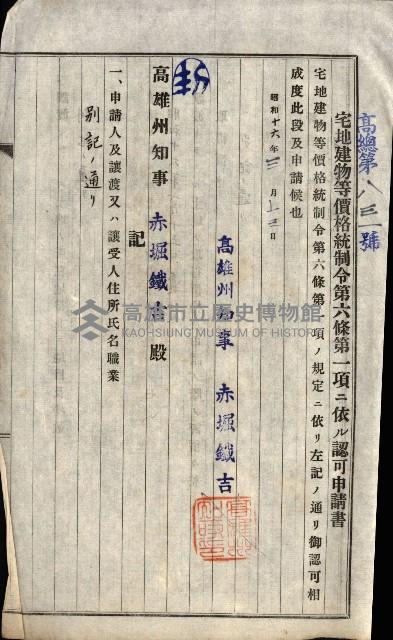 高總第八三一號
宅地建物等價格統制令第六條第一項ニ依ル認可申請書
宅地建物等價格統制令第六條第一項ノ規定ニ依リ左記ノ通リ御認可相
成度此段及申請候也
昭和十六年 月 日
高雄州知事 赤堀鐵吉
高雄州知事 赤堀鐵吉 殿
記
一、申請人及讓渡又ハ讓受人住所氏名職業
別記ノ通リ
高雄市立歷史博物館
KAOHSIUNG MUSEUM OF HISTORY